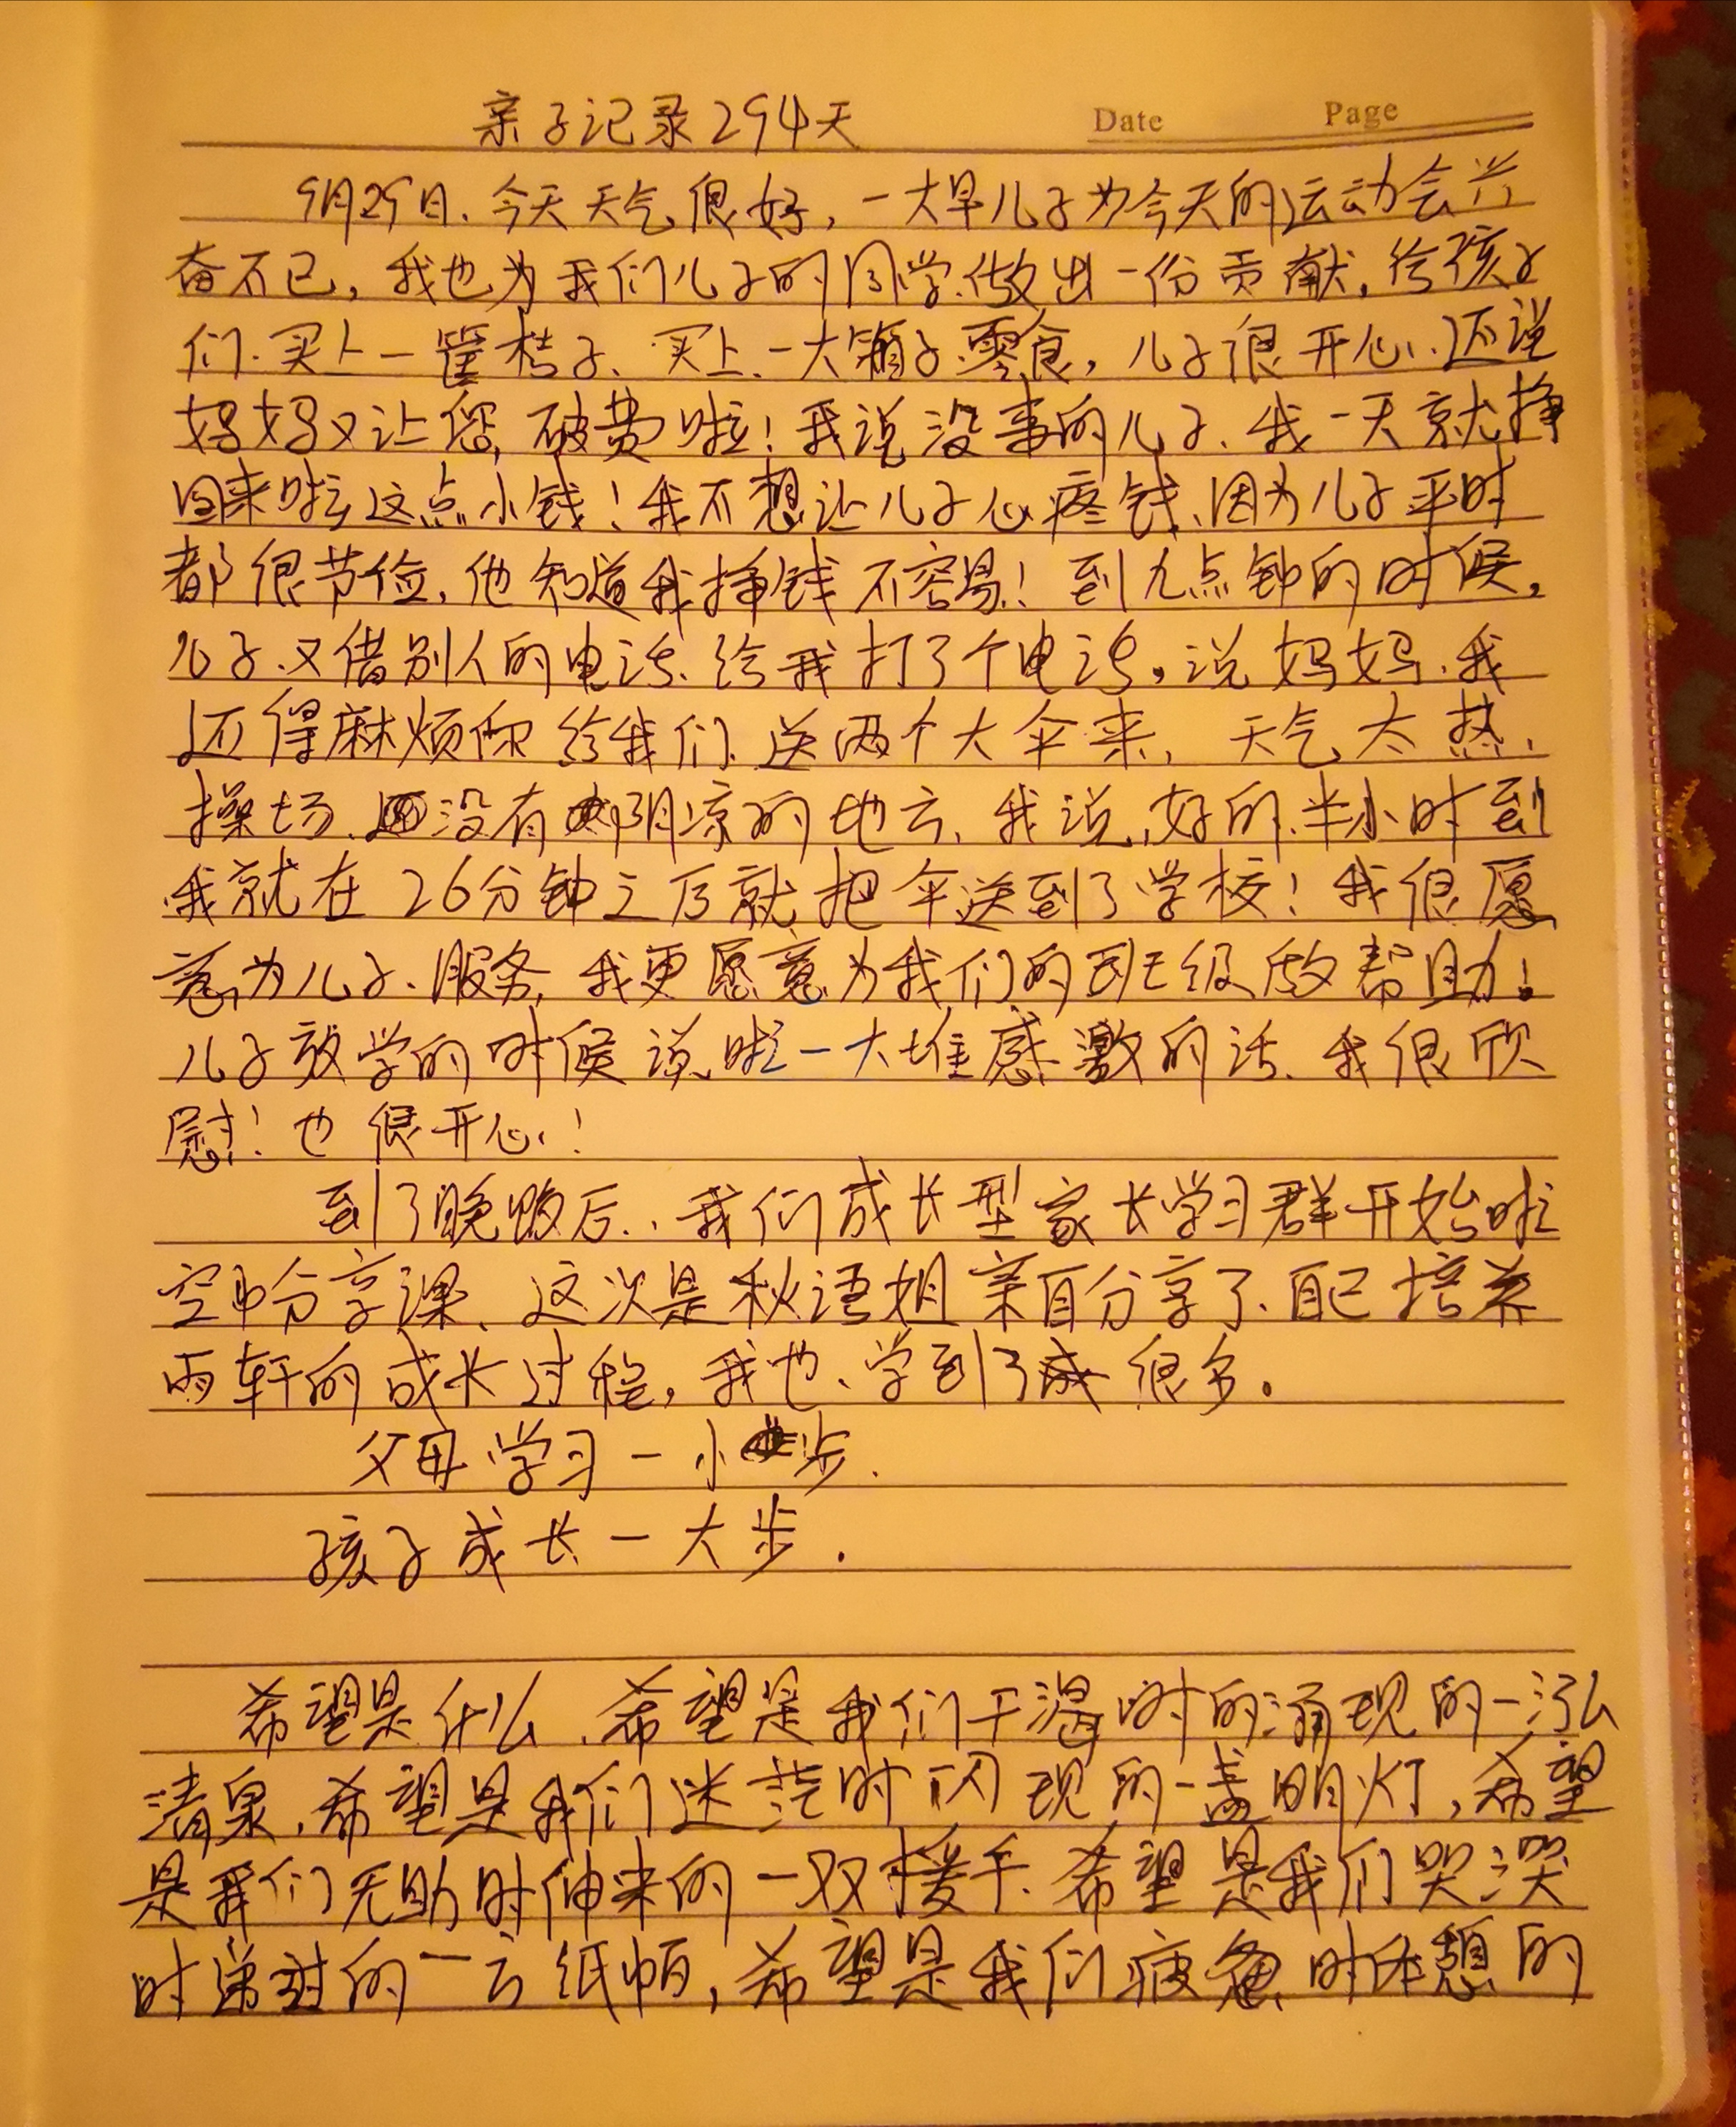 亲子记录294天
Date Page
9月29日、今天天气很好，一大早儿子为今天的运动会兴
奋不已，我也为我们儿子的同学、做出一份贡献，给孩子
们、买上一筐桔子、买上、一大箱子零食，儿子很开心、还说
妈妈又让您，破费啦！我说没事的儿子、我一天就挣
回来啦这点小钱！我不想让儿子心疼钱、因为儿子平时
都很节俭，他知道我挣钱不容易！到九点钟的时候，
儿子、又借别人的电话、给我打了个电话，说妈妈、我
还得麻烦你给我们、送两个大伞来，天气太热，
操场、没有阴凉的地方，我说，好的、半小时到
我就在26分钟之后就把伞送到了学校！我很愿
意为儿子、服务，我更愿意为我们的班级做帮助！
儿子放学的时候说啦一大堆感激的话、我很欣
慰！也很开心！
到了晚饭后、我们成长型家长学习群开始啦
空中分享课、这次是秋语姐亲自分享了、自己培养
雨轩的成长过程，我也、学到了很多。
父母学习一小步.
孩子成长一大步.
希望是什么、希望是我们干渴时的涌现的一泓
清泉，希望是我们迷茫时闪现的一盏明灯，希望
是我们无助时伸来的一双援手、希望是我们哭泣
时递过的一方纸帕，希望是我们疲惫时休憩的